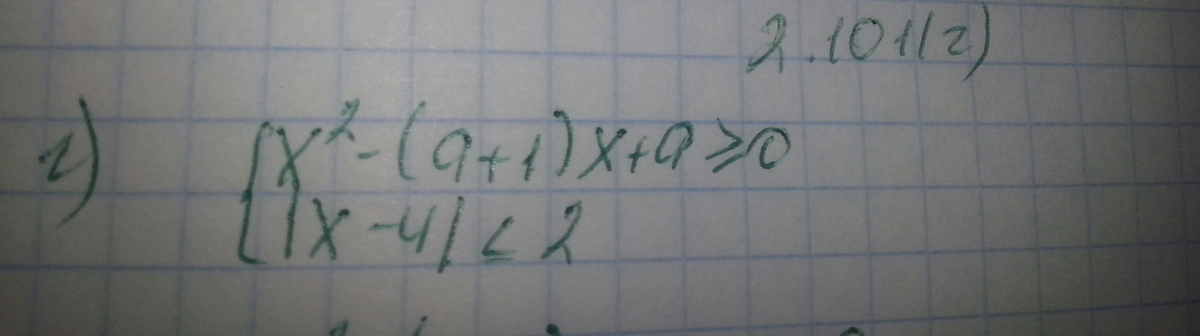 2.101(г)
г) [x² - (a+1)x + a ≥ 0
|x - 4| < 2